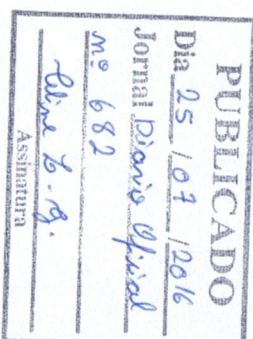 PUBLICADO
Dia 25 / 07 / 2016
Jornal Diário Oficial
nº 682
Assinatura